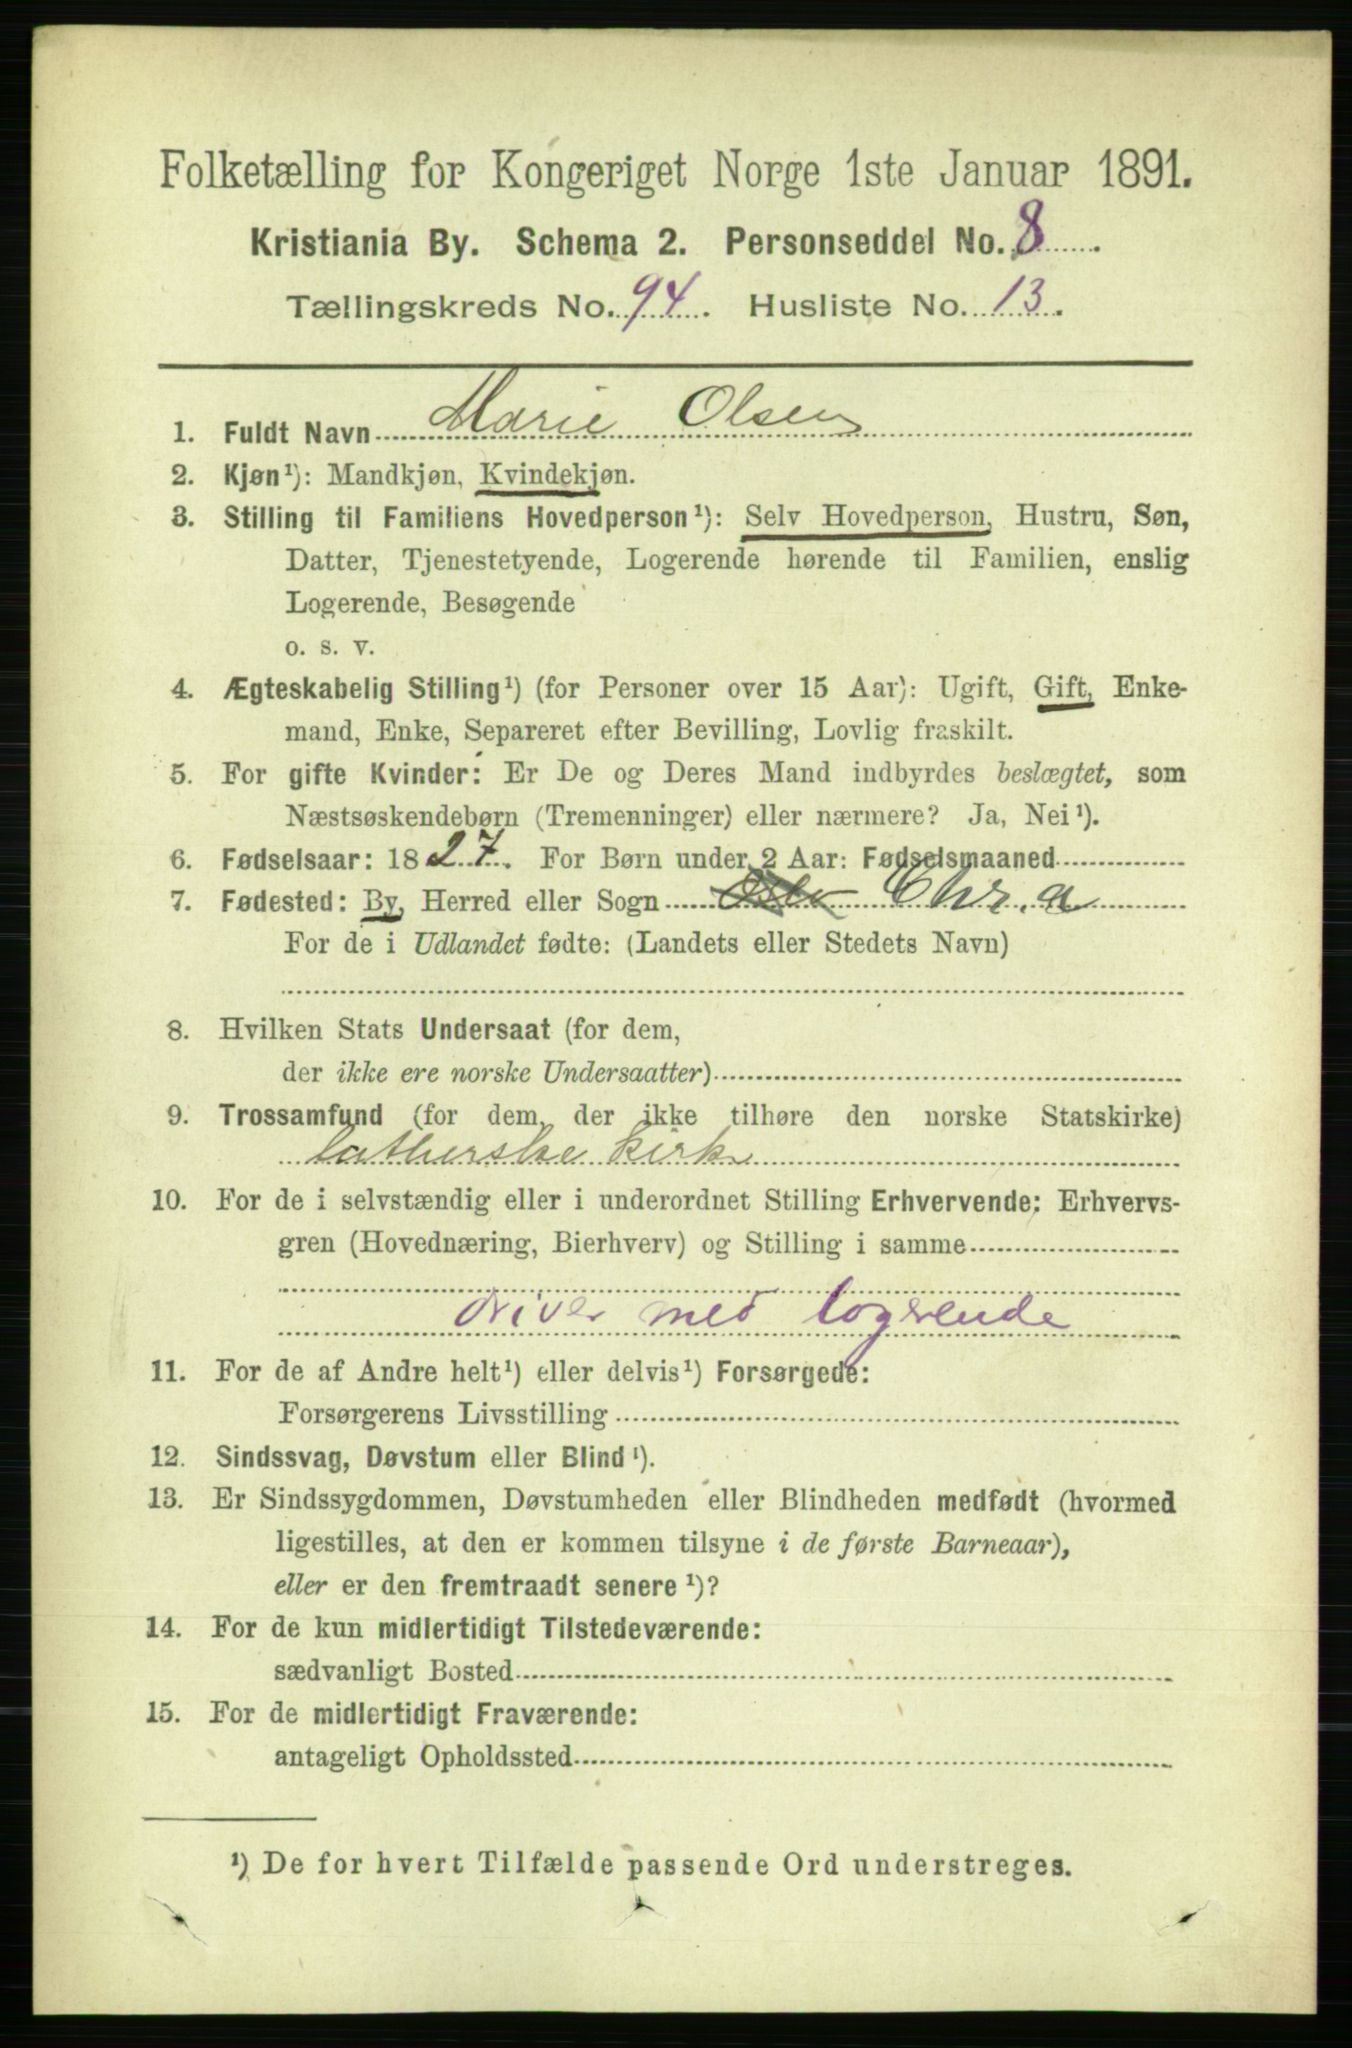 Folketælling for Kongeriget Norge 1ste Januar 1891.
Kristiania By. Schema 2. Personseddel No. 8.
Tællingskreds No. 94. Husliste No. 13.
1. Fuldt Navn Marie Olsen
2. Kjøn¹): Mandkjøn, Kvindekjøn.
3. Stilling til Familiens Hovedperson¹): Selv Hovedperson, Hustru, Søn,
Datter, Tjenestetyende, Logerende hørende til Familien, enslig
Logerende, Besøgende
o. s. v.
4. Ægteskabelig Stilling¹) (for Personer over 15 Aar): Ugift, Gift, Enke-
mand, Enke, Separeret efter Bevilling, Lovlig fraskilt.
5. For gifte Kvinder: Er De og Deres Mand indbyrdes beslægtet, som
Næstsøskendebørn (Tremenninger) eller nærmere? Ja, Nei¹).
6. Fødselsaar: 1827. For Børn under 2 Aar: Fødselsmaaned
7. Fødested: By, Herred eller Sogn Oslo Chr.a
For de i Udlandet fødte: (Landets eller Stedets Navn)
8. Hvilken Stats Undersaat (for dem,
der ikke ere norske Undersaatter)
9. Trossamfund (for dem, der ikke tilhøre den norske Statskirke)
lutherske kirke
10. For de i selvstændig eller i underordnet Stilling Erhvervende: Erhvervs-
gren (Hovednæring, Bierhverv) og Stilling i samme
driver med logerende
11. For de af Andre helt¹) eller delvis¹) Forsørgede:
Forsørgerens Livsstilling
12. Sindssvag, Døvstum eller Blind¹).
13. Er Sindssygdommen, Døvstumheden eller Blindheden medfødt (hvormed
ligestilles, at den er kommen tilsyne i de første Barneaar),
eller er den fremtraadt senere¹)?
14. For de kun midlertidigt Tilstedeværende:
sædvanligt Bosted
15. For de midlertidigt Fraværende:
antageligt Opholdssted
¹) De for hvert Tilfælde passende Ord understreges.